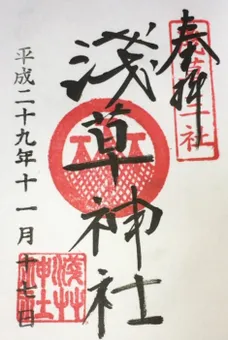 奉拝
浅草神社
平成二十九年十一月十七日
浅草神社